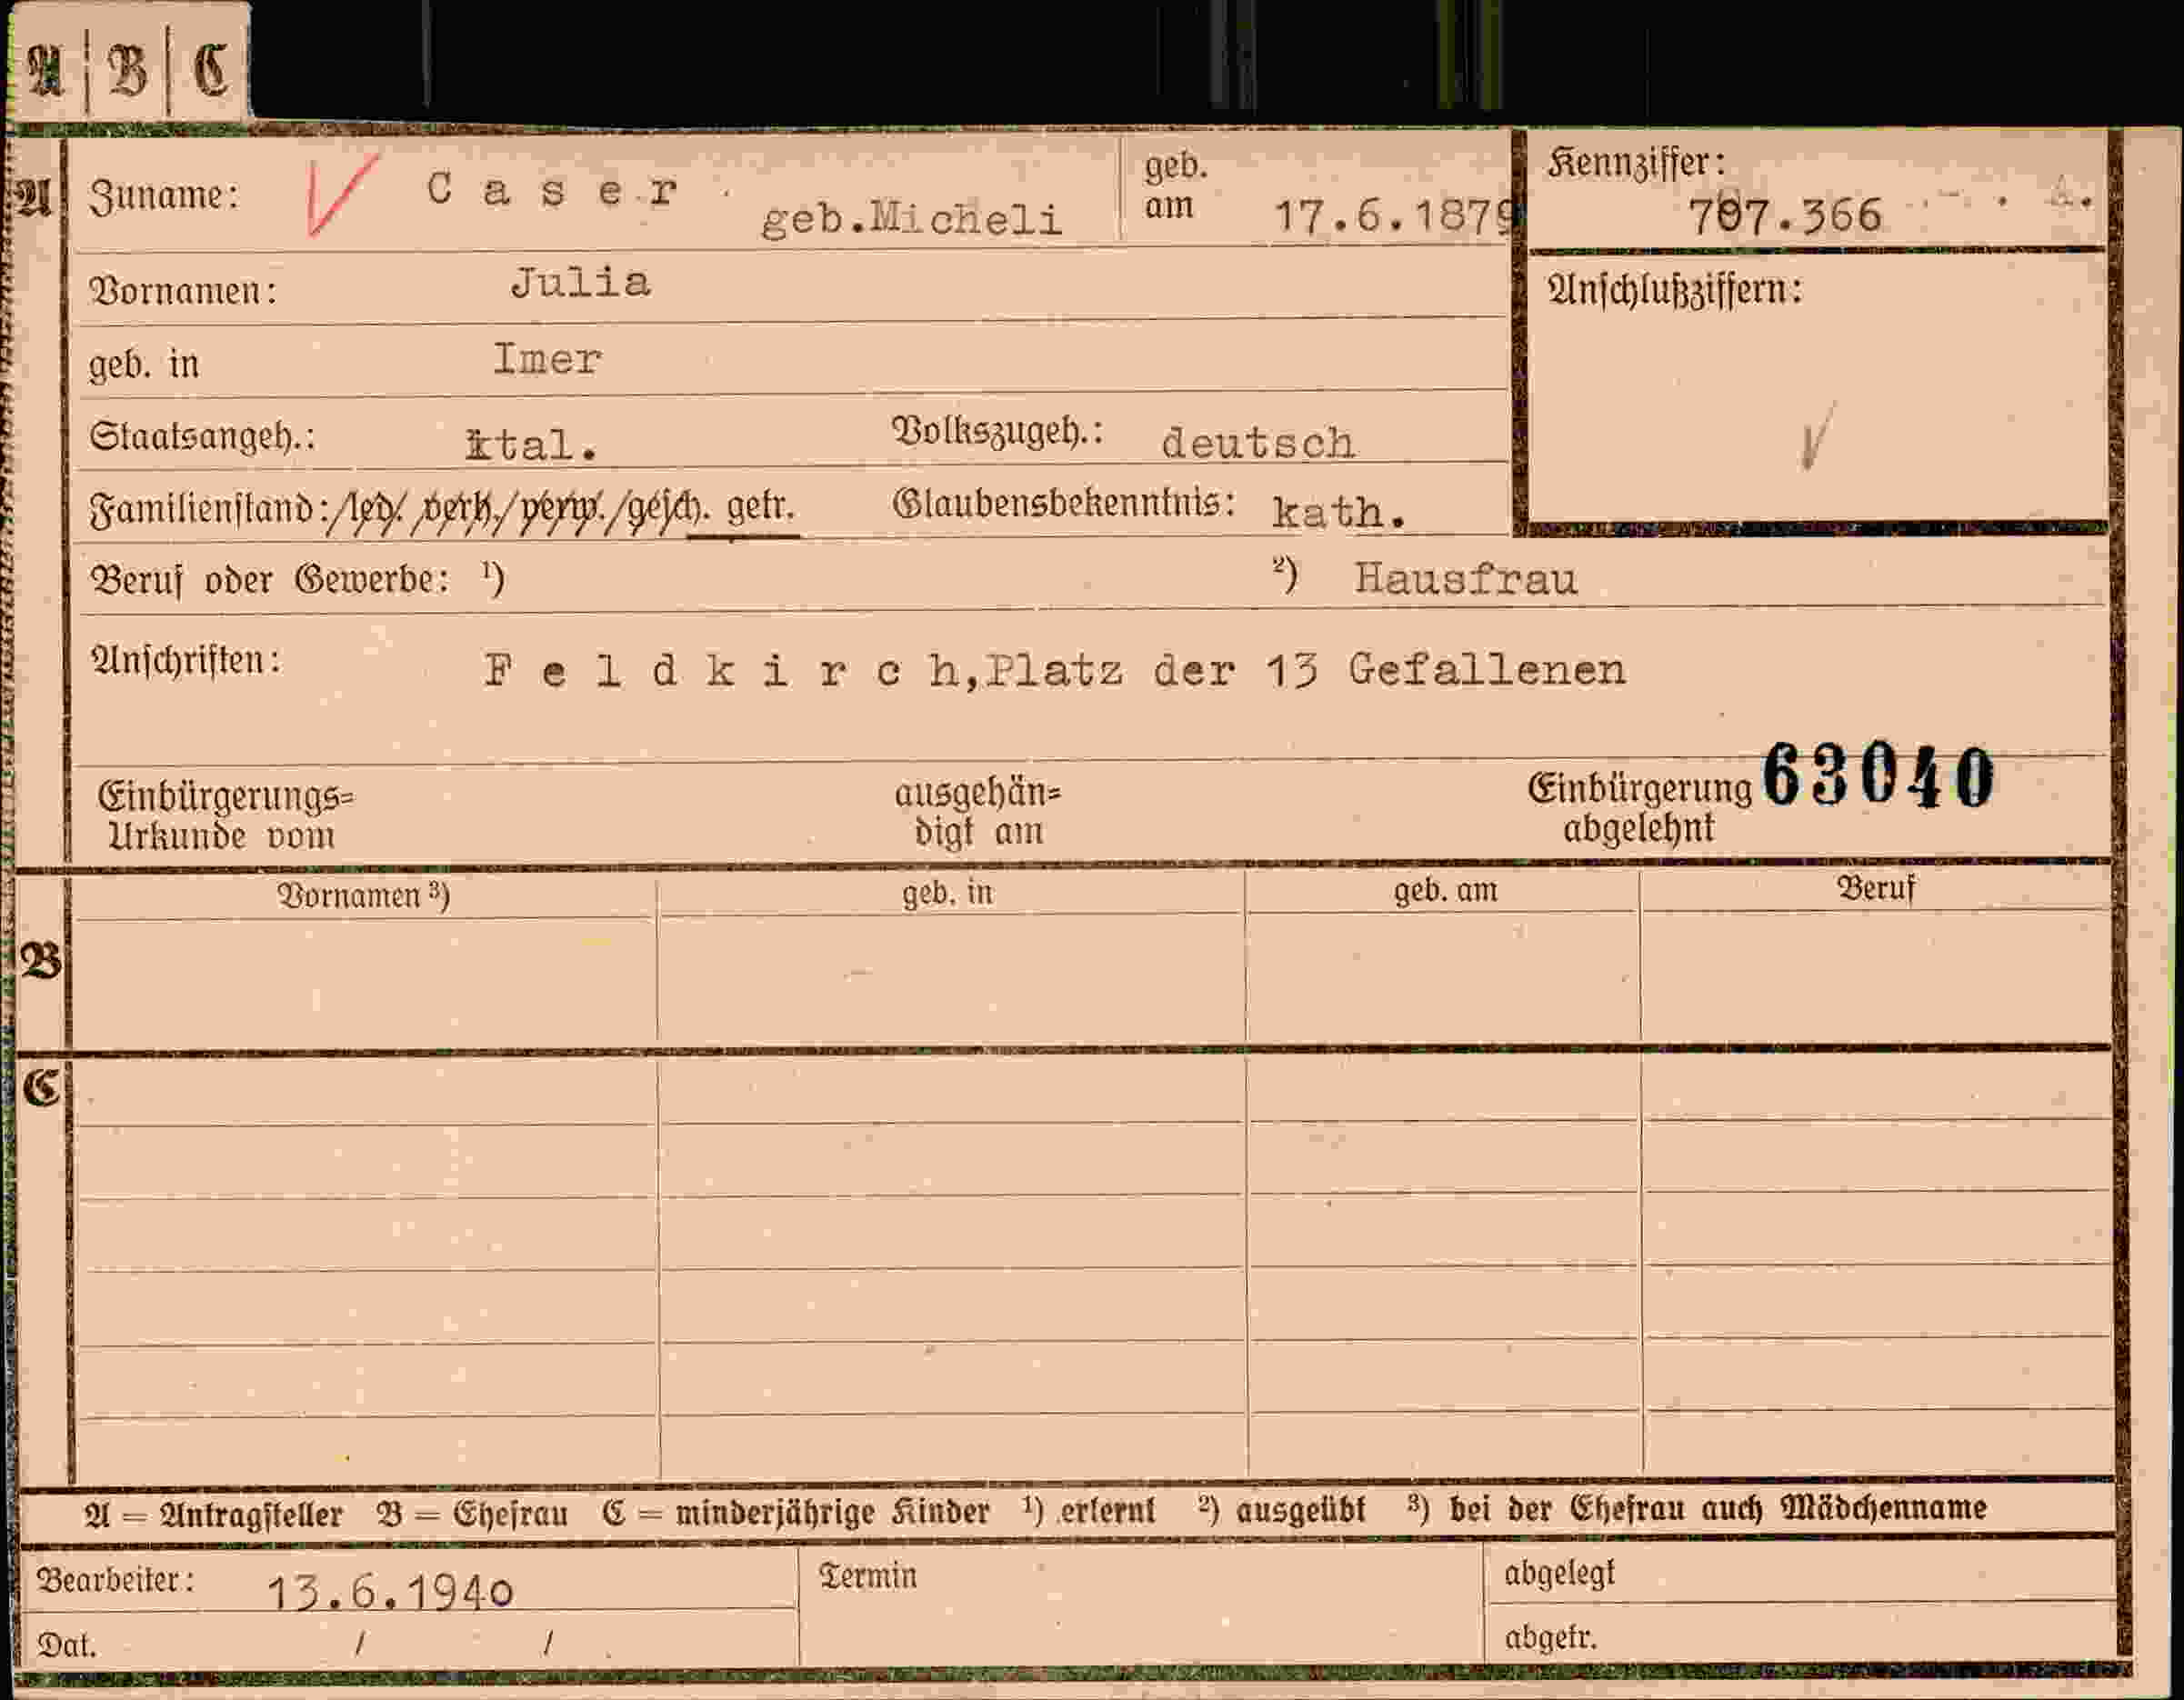 A | B | C
A
Zuname: V C a s e r geb.Micheli geb. am 17.6.1879
Kennziffer: 707.366
Vornamen: Julia
Anschlußziffern:
geb. in Imer
Staatsangeh.: ital. Volkszugeh.: deutsch
Familienstand: led. verh. verw. gesch. getr. Glaubensbekenntnis: kath.
Beruf oder Gewerbe: ¹) ²) Hausfrau
Anschriften: F e l d k i r c h,Platz der 13 Gefallenen
Einbürgerungs=
Urkunde vom
ausgehän=
digt am
Einbürgerung 63040
abgelehnt
Vornamen ³) geb. in geb. am Beruf
B
C
A = Antragsteller B = Ehefrau C = minderjährige Kinder ¹) erlernt ²) ausgeübt ³) bei der Ehefrau auch Mädchenname
Bearbeiter: 13.6.1940 Termin abgelegt
Dat. / / abgetr.